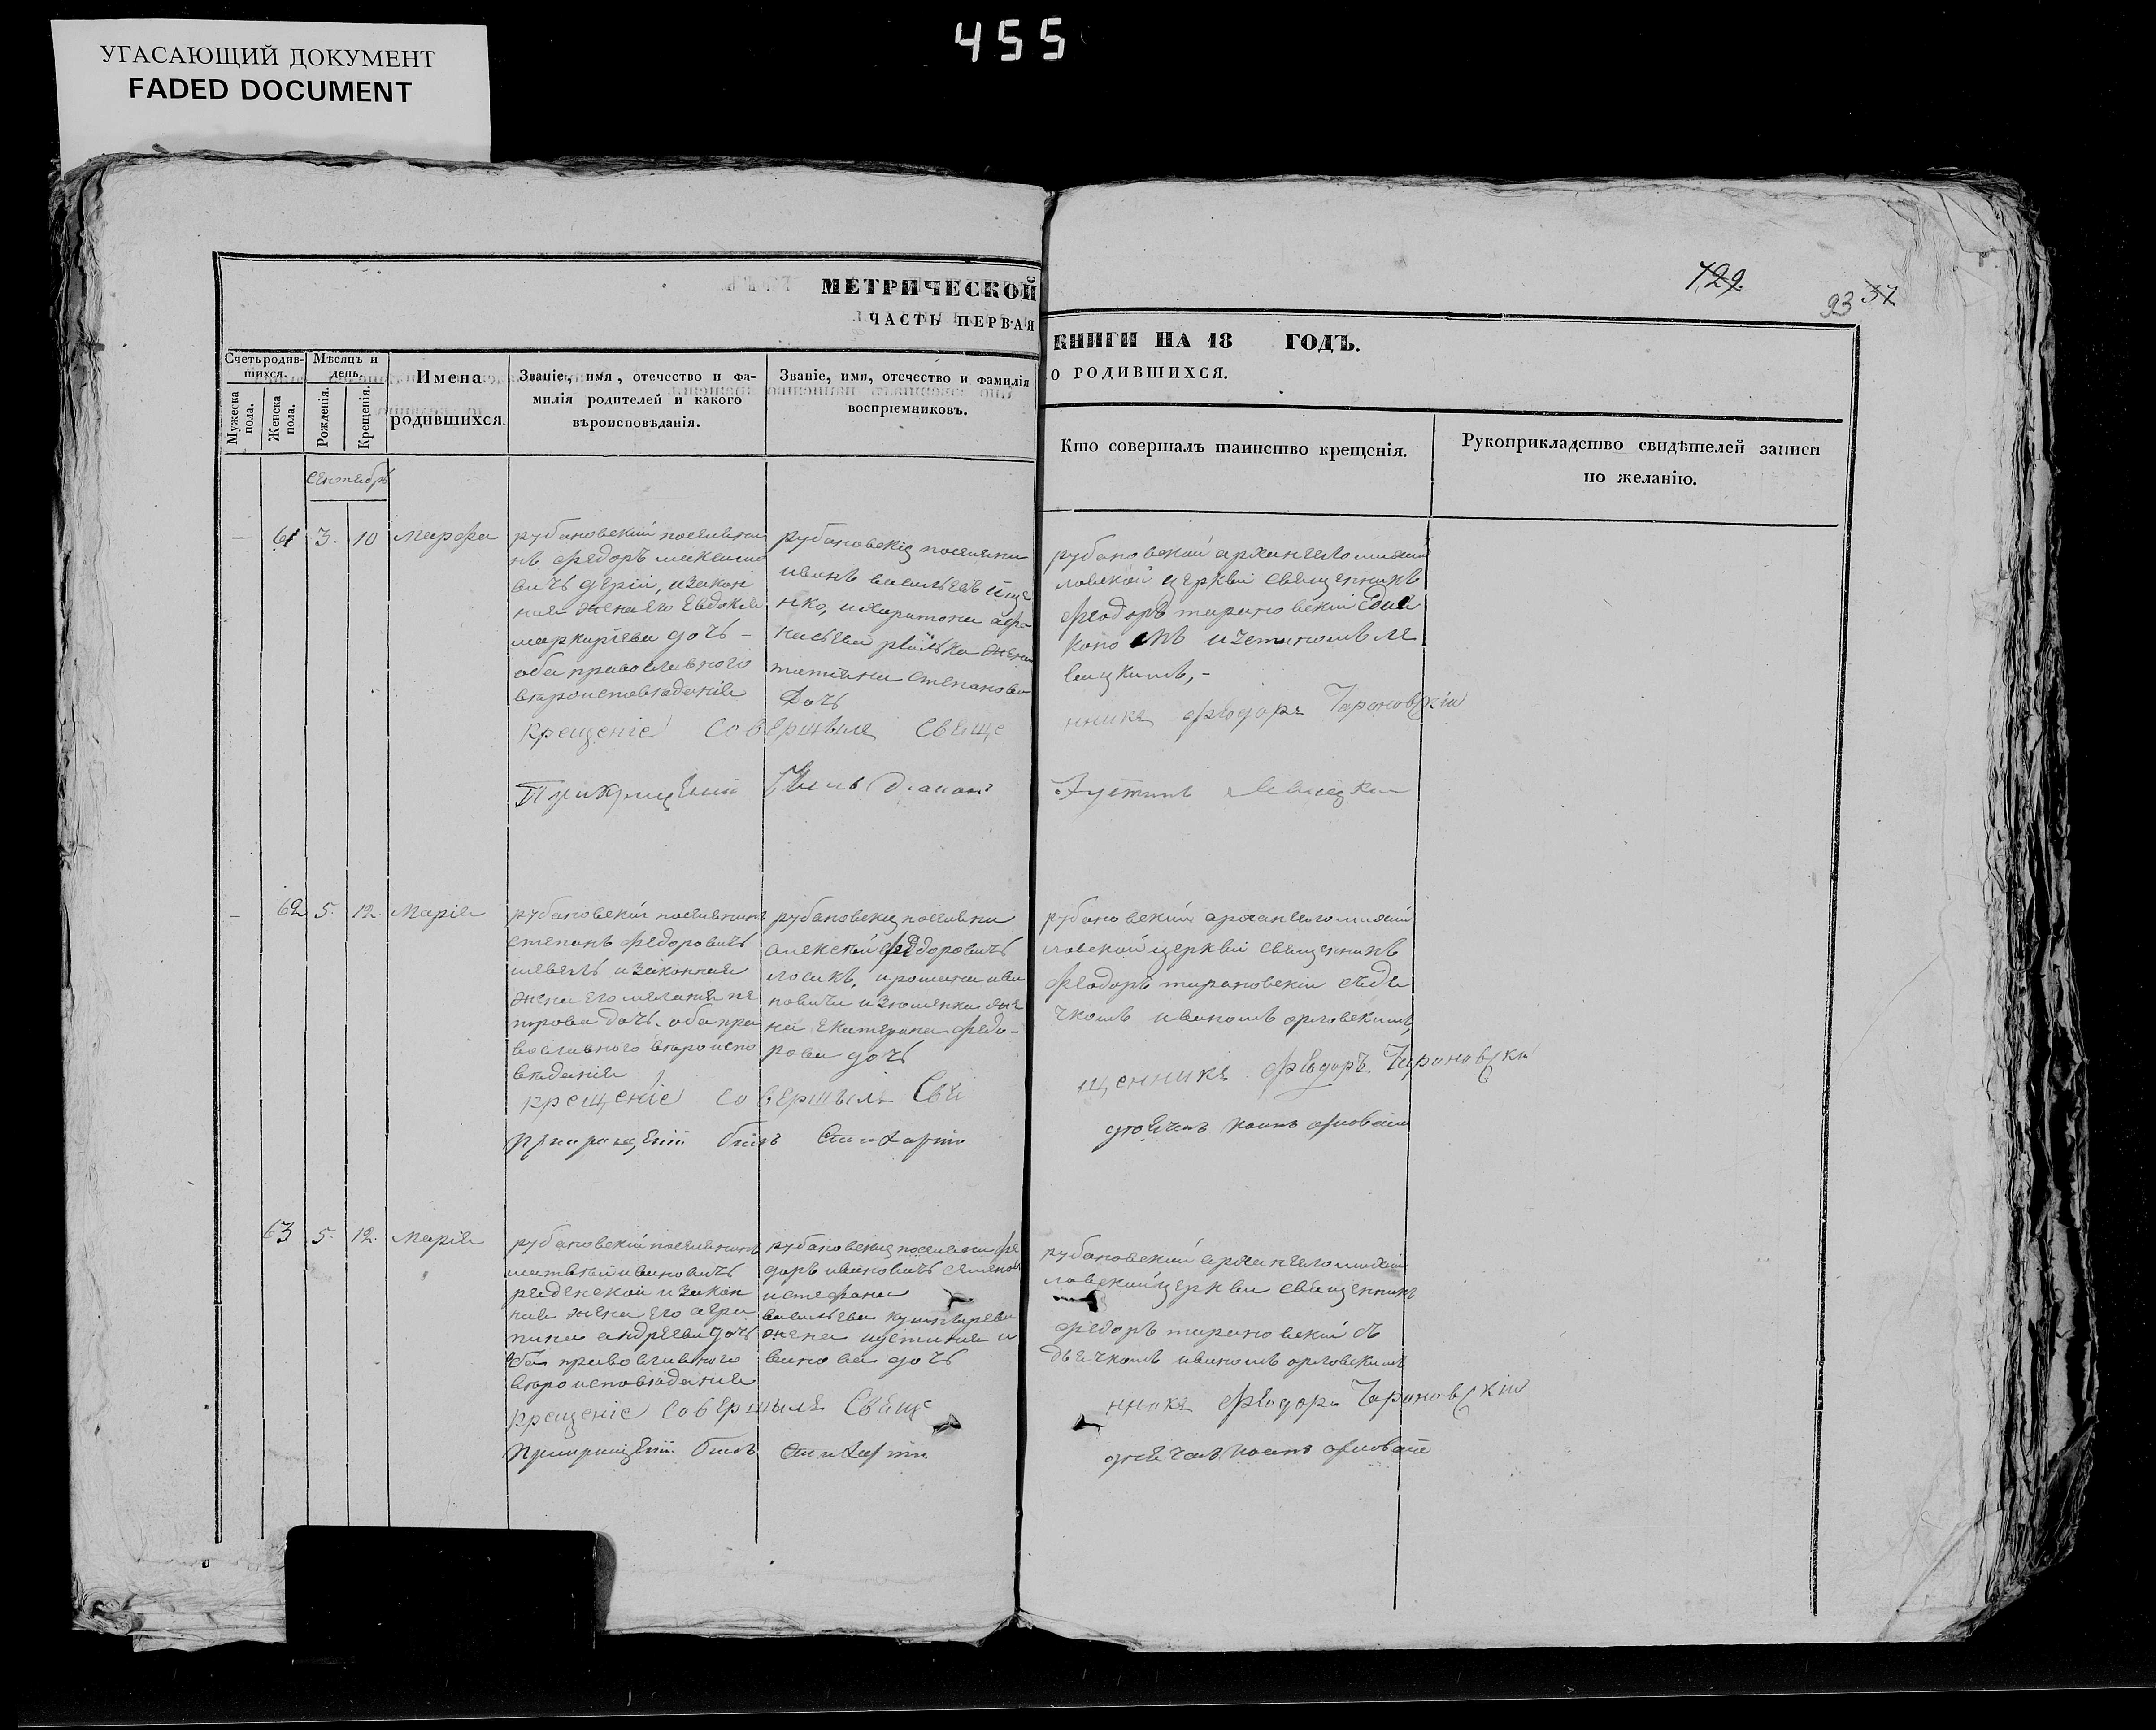 455
УГАСАЮЩИЙ ДОКУМЕНТ
FADED DOCUMENT
129.
93 37
МЕТРИЧЕСКОЙ
ЧАСТЬ ПЕРВАЯ
КНИГИ НА 18 ГОДЪ.
О РОДИВШИХСЯ.
Счетъ родив-
шихся.
Мужеска
пола.
Женска
пола.
Мѣсяцъ и
день.
Рожденія.
Крещенія.
Имена
родившихся.
Званіе, имя, отечество и фа-
милія родителей и какого
вѣроисповѣданія.
Званіе, имя, отечество и фамилія
воспріемниковъ.
Кто совершалъ таинство крещенія.
Рукоприкладство свидѣтелей записи
по желанію.
Сентябрь
— 61 3. 10 Марфа
рубановскій поселяни
нъ федоръ максимо
вичъ дерій, и закон
ная жена его Евдокия
маркиріева дочь —
оба православного
вѣроисповѣданія
рубановскія поселяни
иванъ васильевъ
нко, и харитона афа
насьева жена
татіяна степанова
дочь
рубановской архангеломихаи
ловской церкви священникъ
феодоръ тарановскій
вицкимъ, -
крещеніе совершылъ свяще
нникъ Феодоръ Тарановскій
— 62 5. 12. Марія
рубановскій поселянинъ
степанъ федоровичъ
шевель и законная
жена его мелания пе
трова дочь. оба пра
вославного вѣроиспо
вѣданія
рубановскія поселяни
алексѣй федоровичъ
носикъ, и романа ива
новича изюменка же
на екатерина федо-
рова дочь
рубановскій архангеломихаи
ловской церкви священникъ
феодоръ тарановскій съ дя
чкомъ иваномъ орловскимъ,
крещеніе совершылъ Свя
щенникъ Феодоръ Тарановскі
63 5. 12. Марія
рубановскій поселянинъ
матвѣй ивановичъ
и закон
ная жена его агри
пина андреева дочь
оба православного
вѣроисповѣдания
рубановскія поселяни фе
доръ ивановичъ
и стефана
васильева
жена иустиния и
ванова дочь
рубановской архангеломихаи
ловской церкви священникъ
федоръ тарановскій съ
дьячкомъ иваномъ орловскимъ
крещеніе совершылъ Свяще
нникъ Феодоръ Тарановскій